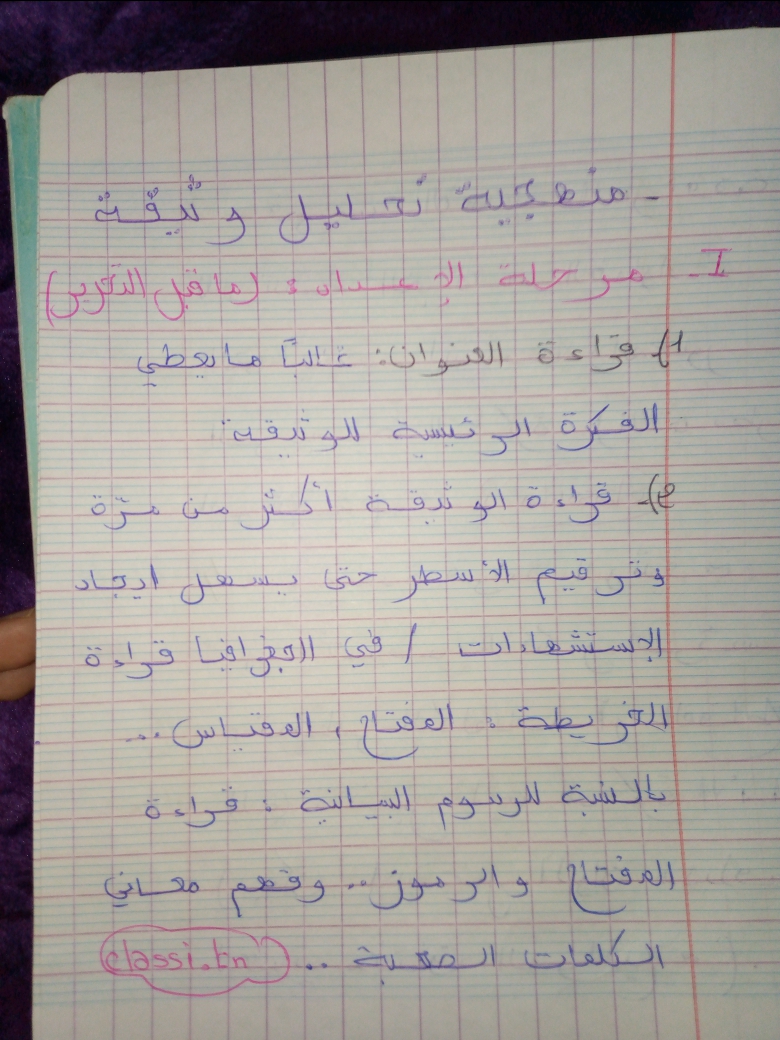 - منهجية تحليل وثيقة
I- مرحلة الإعداد: (ما قبل التحرير)
1)- قراءة العنوان: غالبًا ما يعطي
الفكرة الرئيسية للوثيقة
2)- قراءة الوثيقة أكثر من مرّة
وترقيم الأسطر حتى يسهل ايجاد
الإستشهادات / في الجغرافيا قراءة
الخريطة: المفتاح، المقياس...
بالنسبة للرسوم البيانية: قراءة
المفتاح والرموز.. وفهم معاني
الكلمات الصعبة .. classi.tn